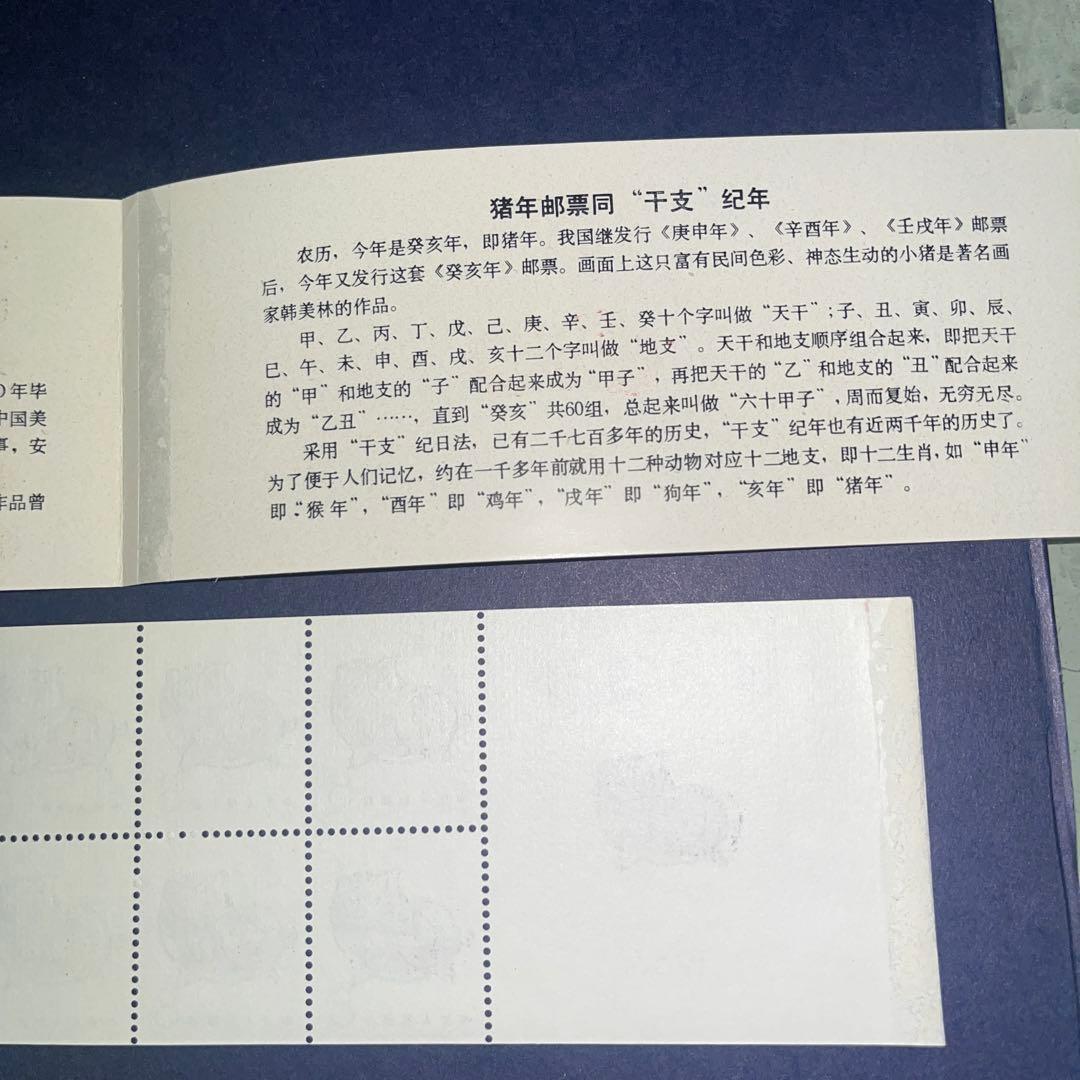 猪年邮票同“干支”纪年
农历，今年是癸亥年，即猪年。我国继发行《庚申年》、《辛酉年》、《壬戌年》邮票
后，今年又发行这套《癸亥年》邮票。画面上这只富有民间色彩、神态生动的小猪是著名画
家韩美林的作品。
甲、乙、丙、丁、戊、己、庚、辛、壬、癸十个字叫做“天干”；子、丑、寅、卯、辰、
巳、午、未、申、酉、戌、亥十二个字叫做“地支”。天干和地支顺序组合起来，即把天干
的“甲”和地支的“子”配合起来成为“甲子”，再把天干的“乙”和地支的“丑”配合起来
成为“乙丑”……，直到“癸亥”共60组，总起来叫做“六十甲子”，周而复始，无穷无尽。
采用“干支”纪日法，已有二千七百多年的历史，“干支”纪年也有近两千年的历史了。
为了便于人们记忆，约在一千多年前就用十二种动物对应十二地支，即十二生肖，如“申年”
即“猴年”，“酉年”即“鸡年”，“戌年”即“狗年”，“亥年”即“猪年”。
0年毕
中国美
事，安
作品曾